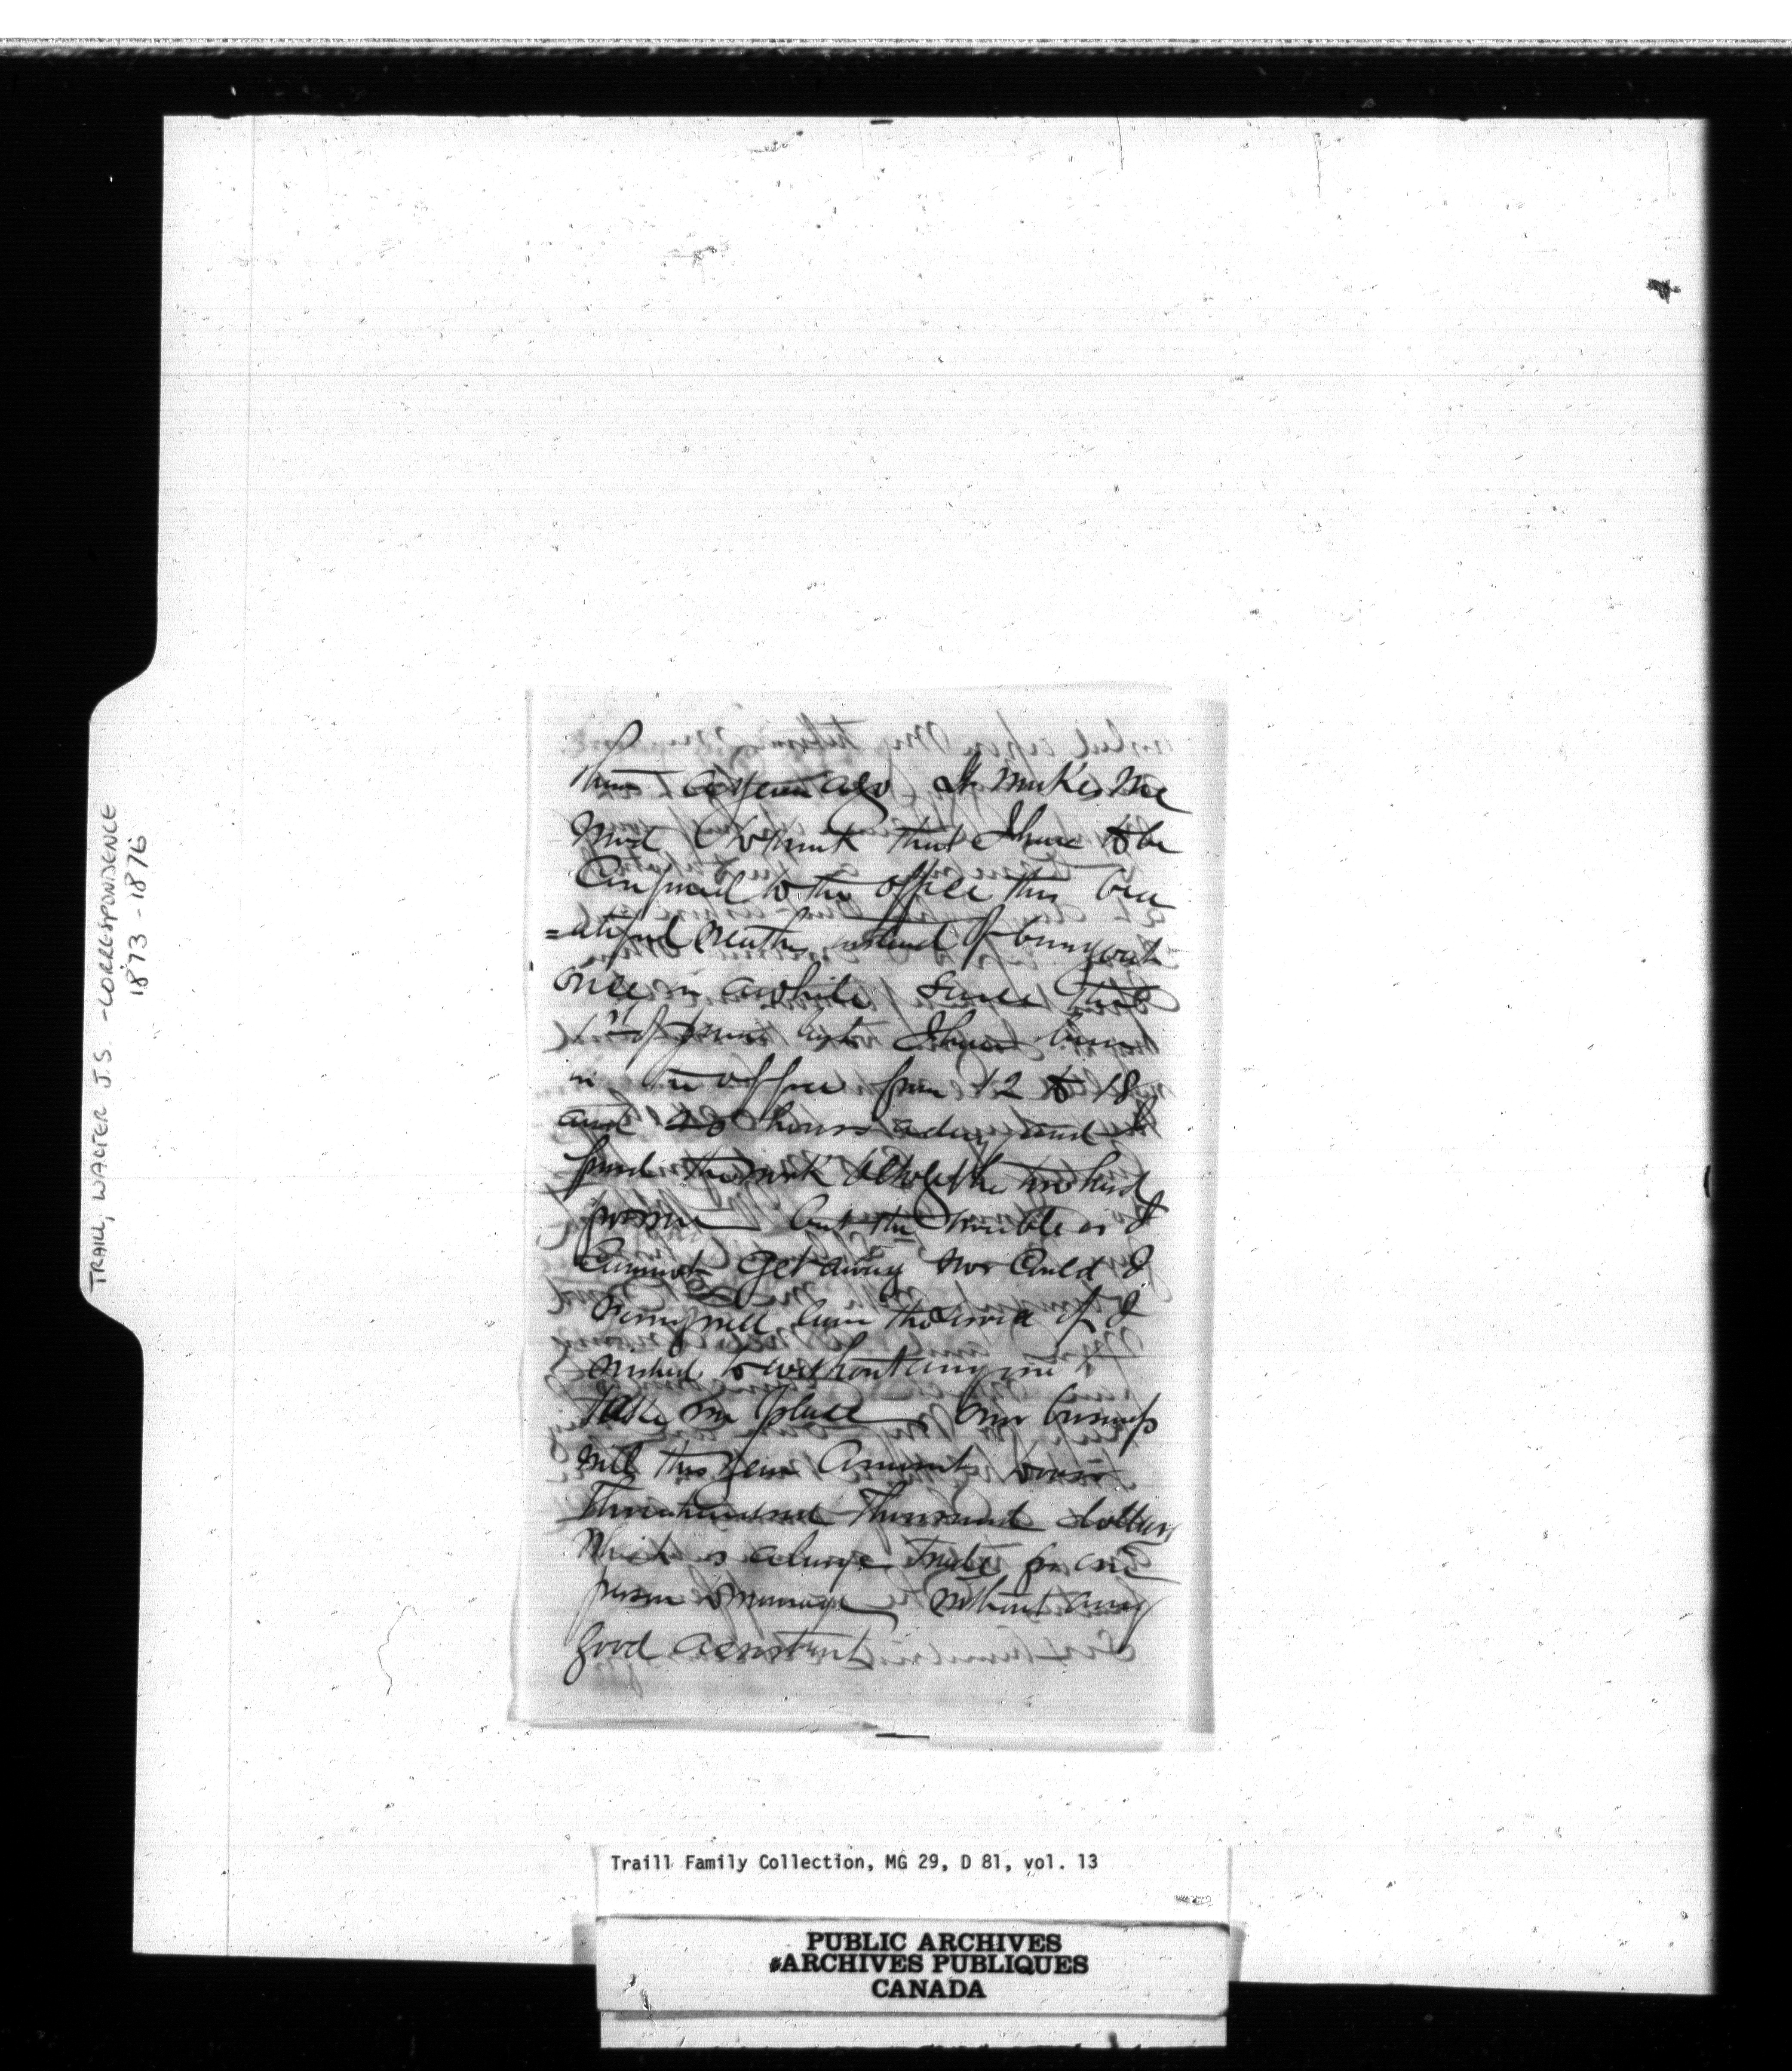 TRAILL, WALTER J.S. - CORRESPONDENCE
1873 - 1876
than a year ago It makes me
mad to think that I have to be
Confined to the office this beau
=atiful weather instead of being out
once in awhile Since the
1st of June last I have been
in the office from 12 to 18
and 20 hours a day and I
find the work altogether too hard
but the trouble is I
Cannot get away nor Could I
very well leave the if I
wished to without any one to
take my place our business
will this year Amount to over
Three hundred Thousand dollars
Which is a large trade for one
person to manage without any
good assistant
Traill Family Collection, MG 29, D 81, vol. 13
PUBLIC ARCHIVES
ARCHIVES PUBLIQUES
CANADA